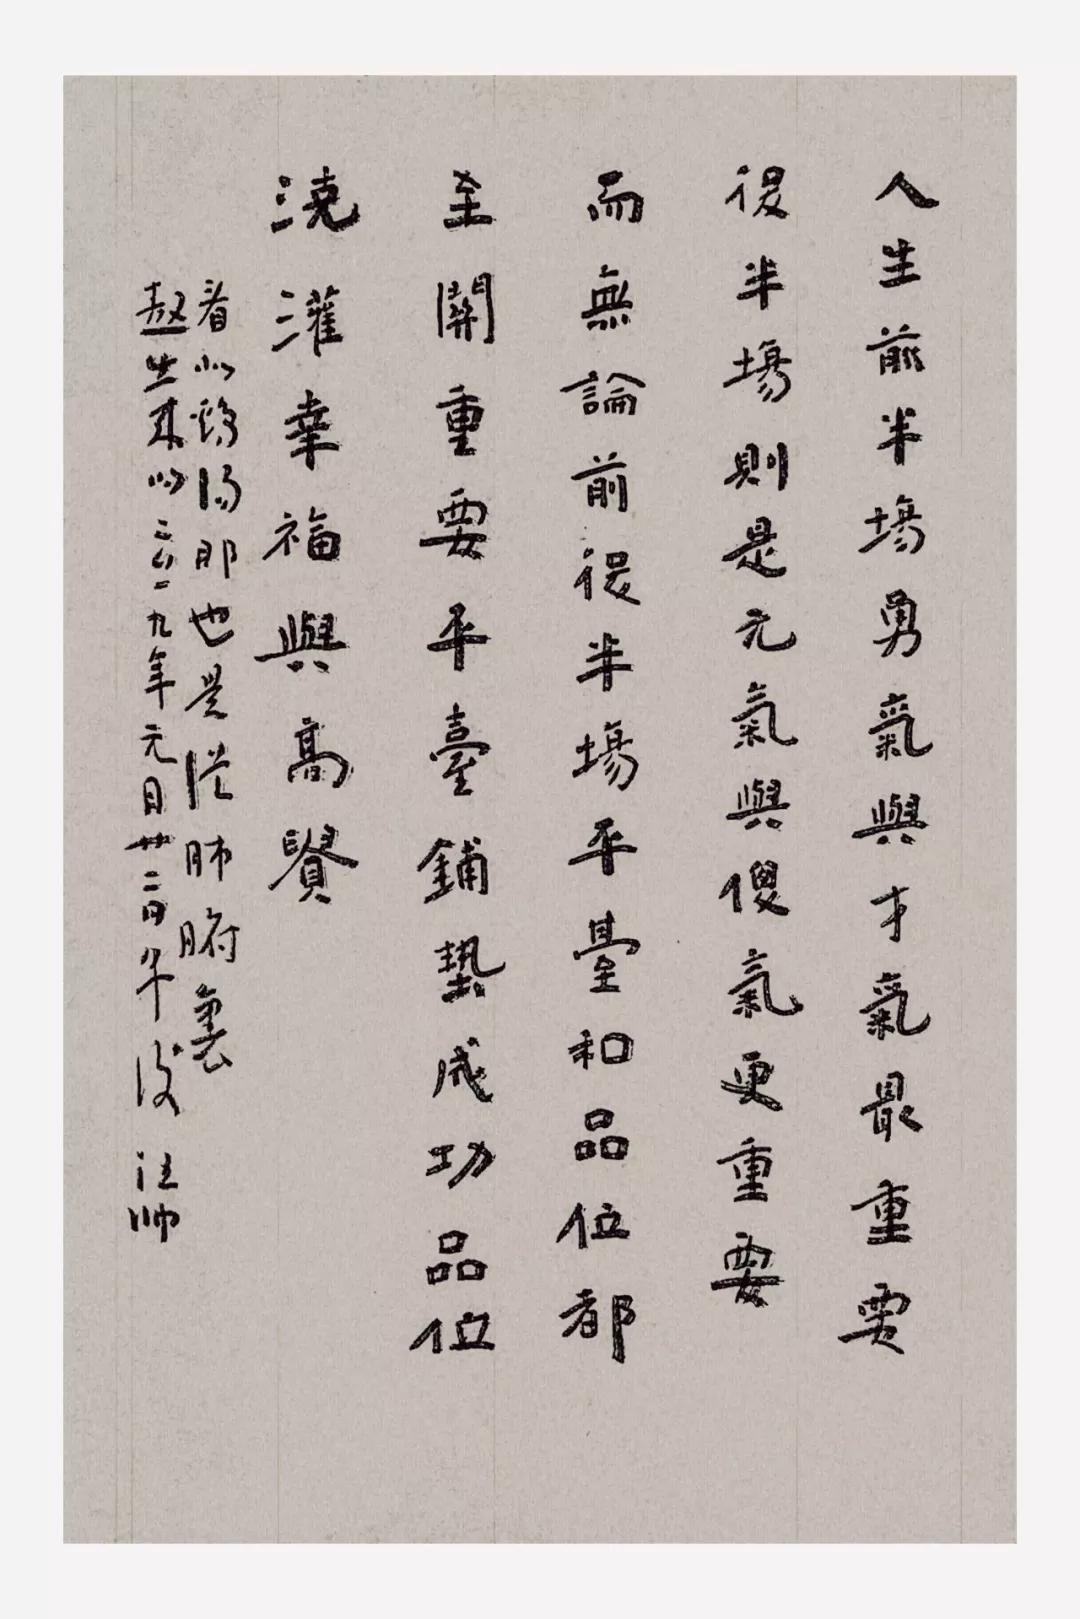 人生前半場勇氣與才氣最重要
後半場則是元氣與傻氣更重要
而無論前後半場平臺和品位都
至關重要平臺鋪墊成功品位
澆灌幸福與高賢
看似鷄湯那也是從肺腑裏
熬出來的二〇一九年元月廿二日午後 注帅